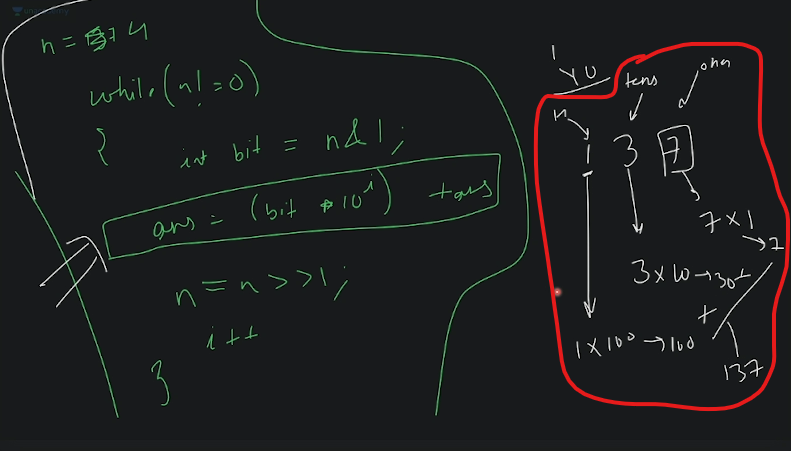 n = 4
while (n! = 0)
{
int bit = n & 1 ;
ans = (bit * 10^i) + ans
n = n >> 1 ;
i ++
}
tens
ones
1 3 7
7 × 1 → 7
3 × 10 → 30 +
+
1 × 100 → 100
137